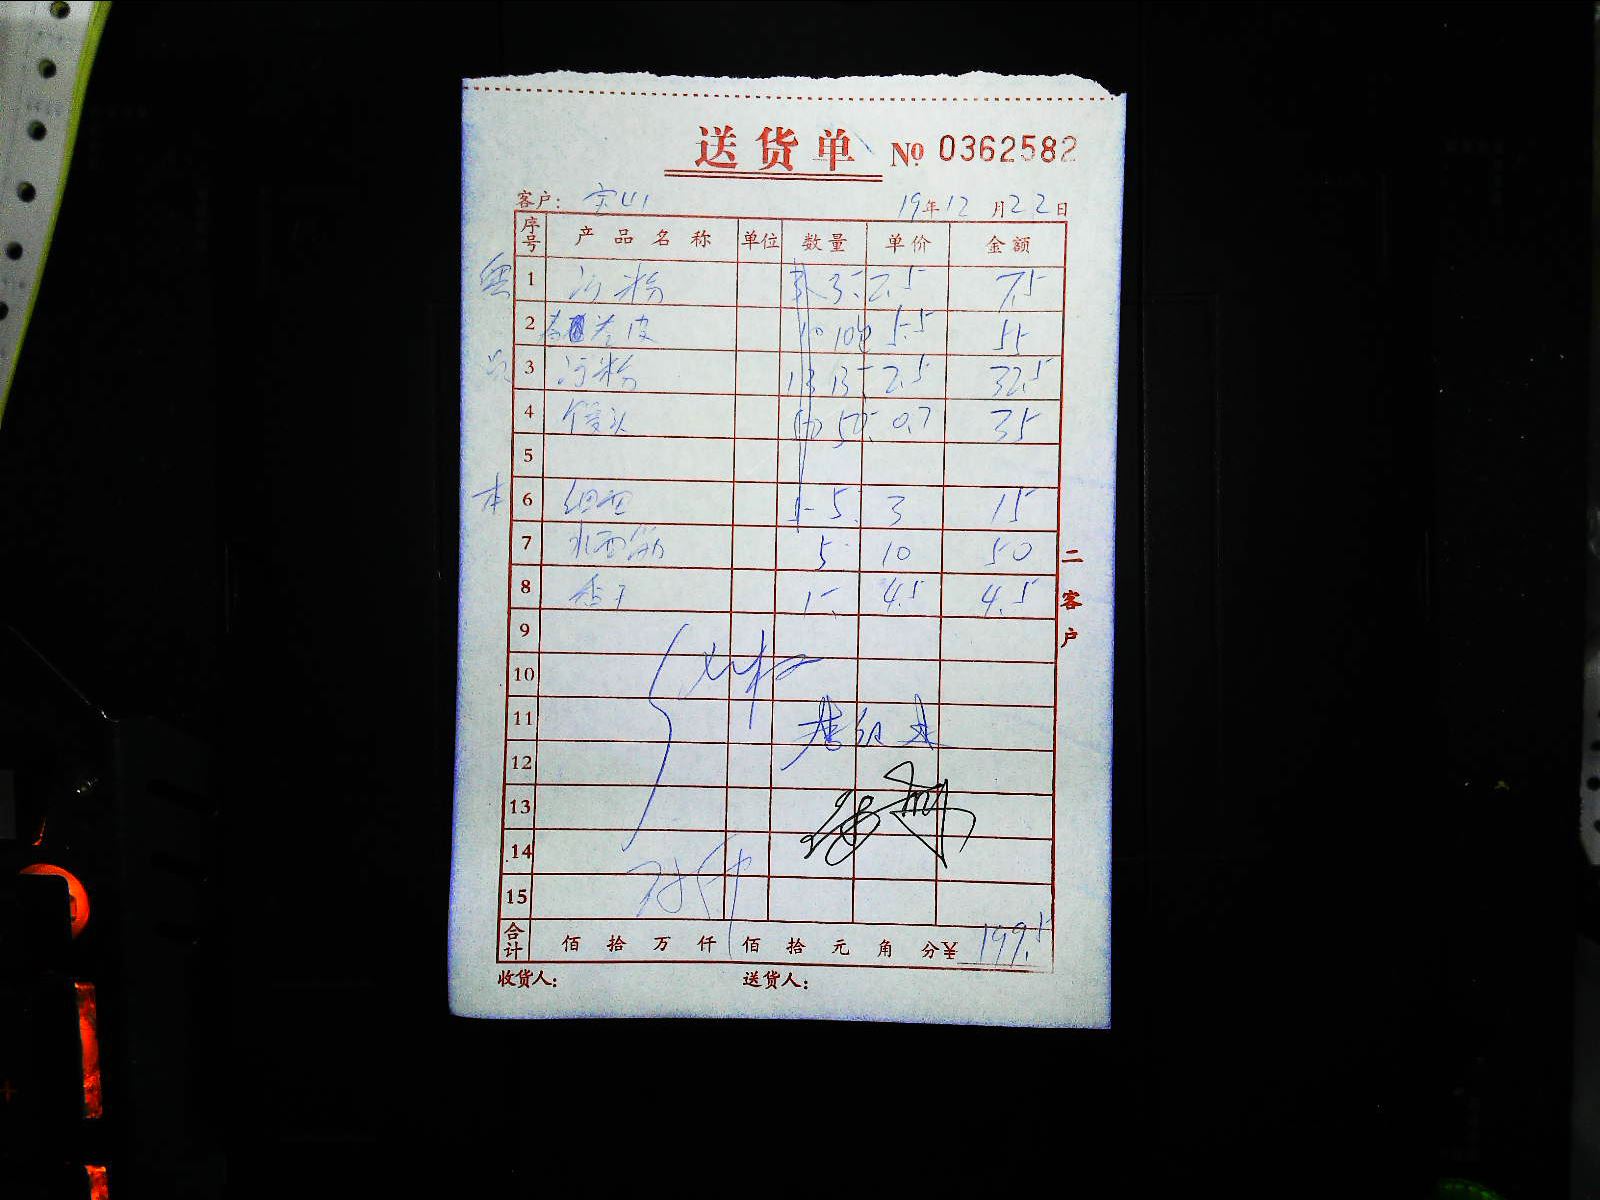 送货单 № 0362582
客户: 宝山 19年12月22日
序号 产品名称 单位 数量 单价 金额
1 河粉 3 2.5 7.5
2 卷皮 10 10包 5.5 55
3 河粉 13 13 2.5 32.5
4 馒头 50 50 0.7 35
5
本 6 细面 5 3 15
7 水面筋 5 10 50
8 香干 1 4.5 4.5
9
10
11
12
13
14
15
合计 佰 拾 万 仟 佰 拾 元 角 分 ¥ 199.5
收货人: 送货人:
二客户